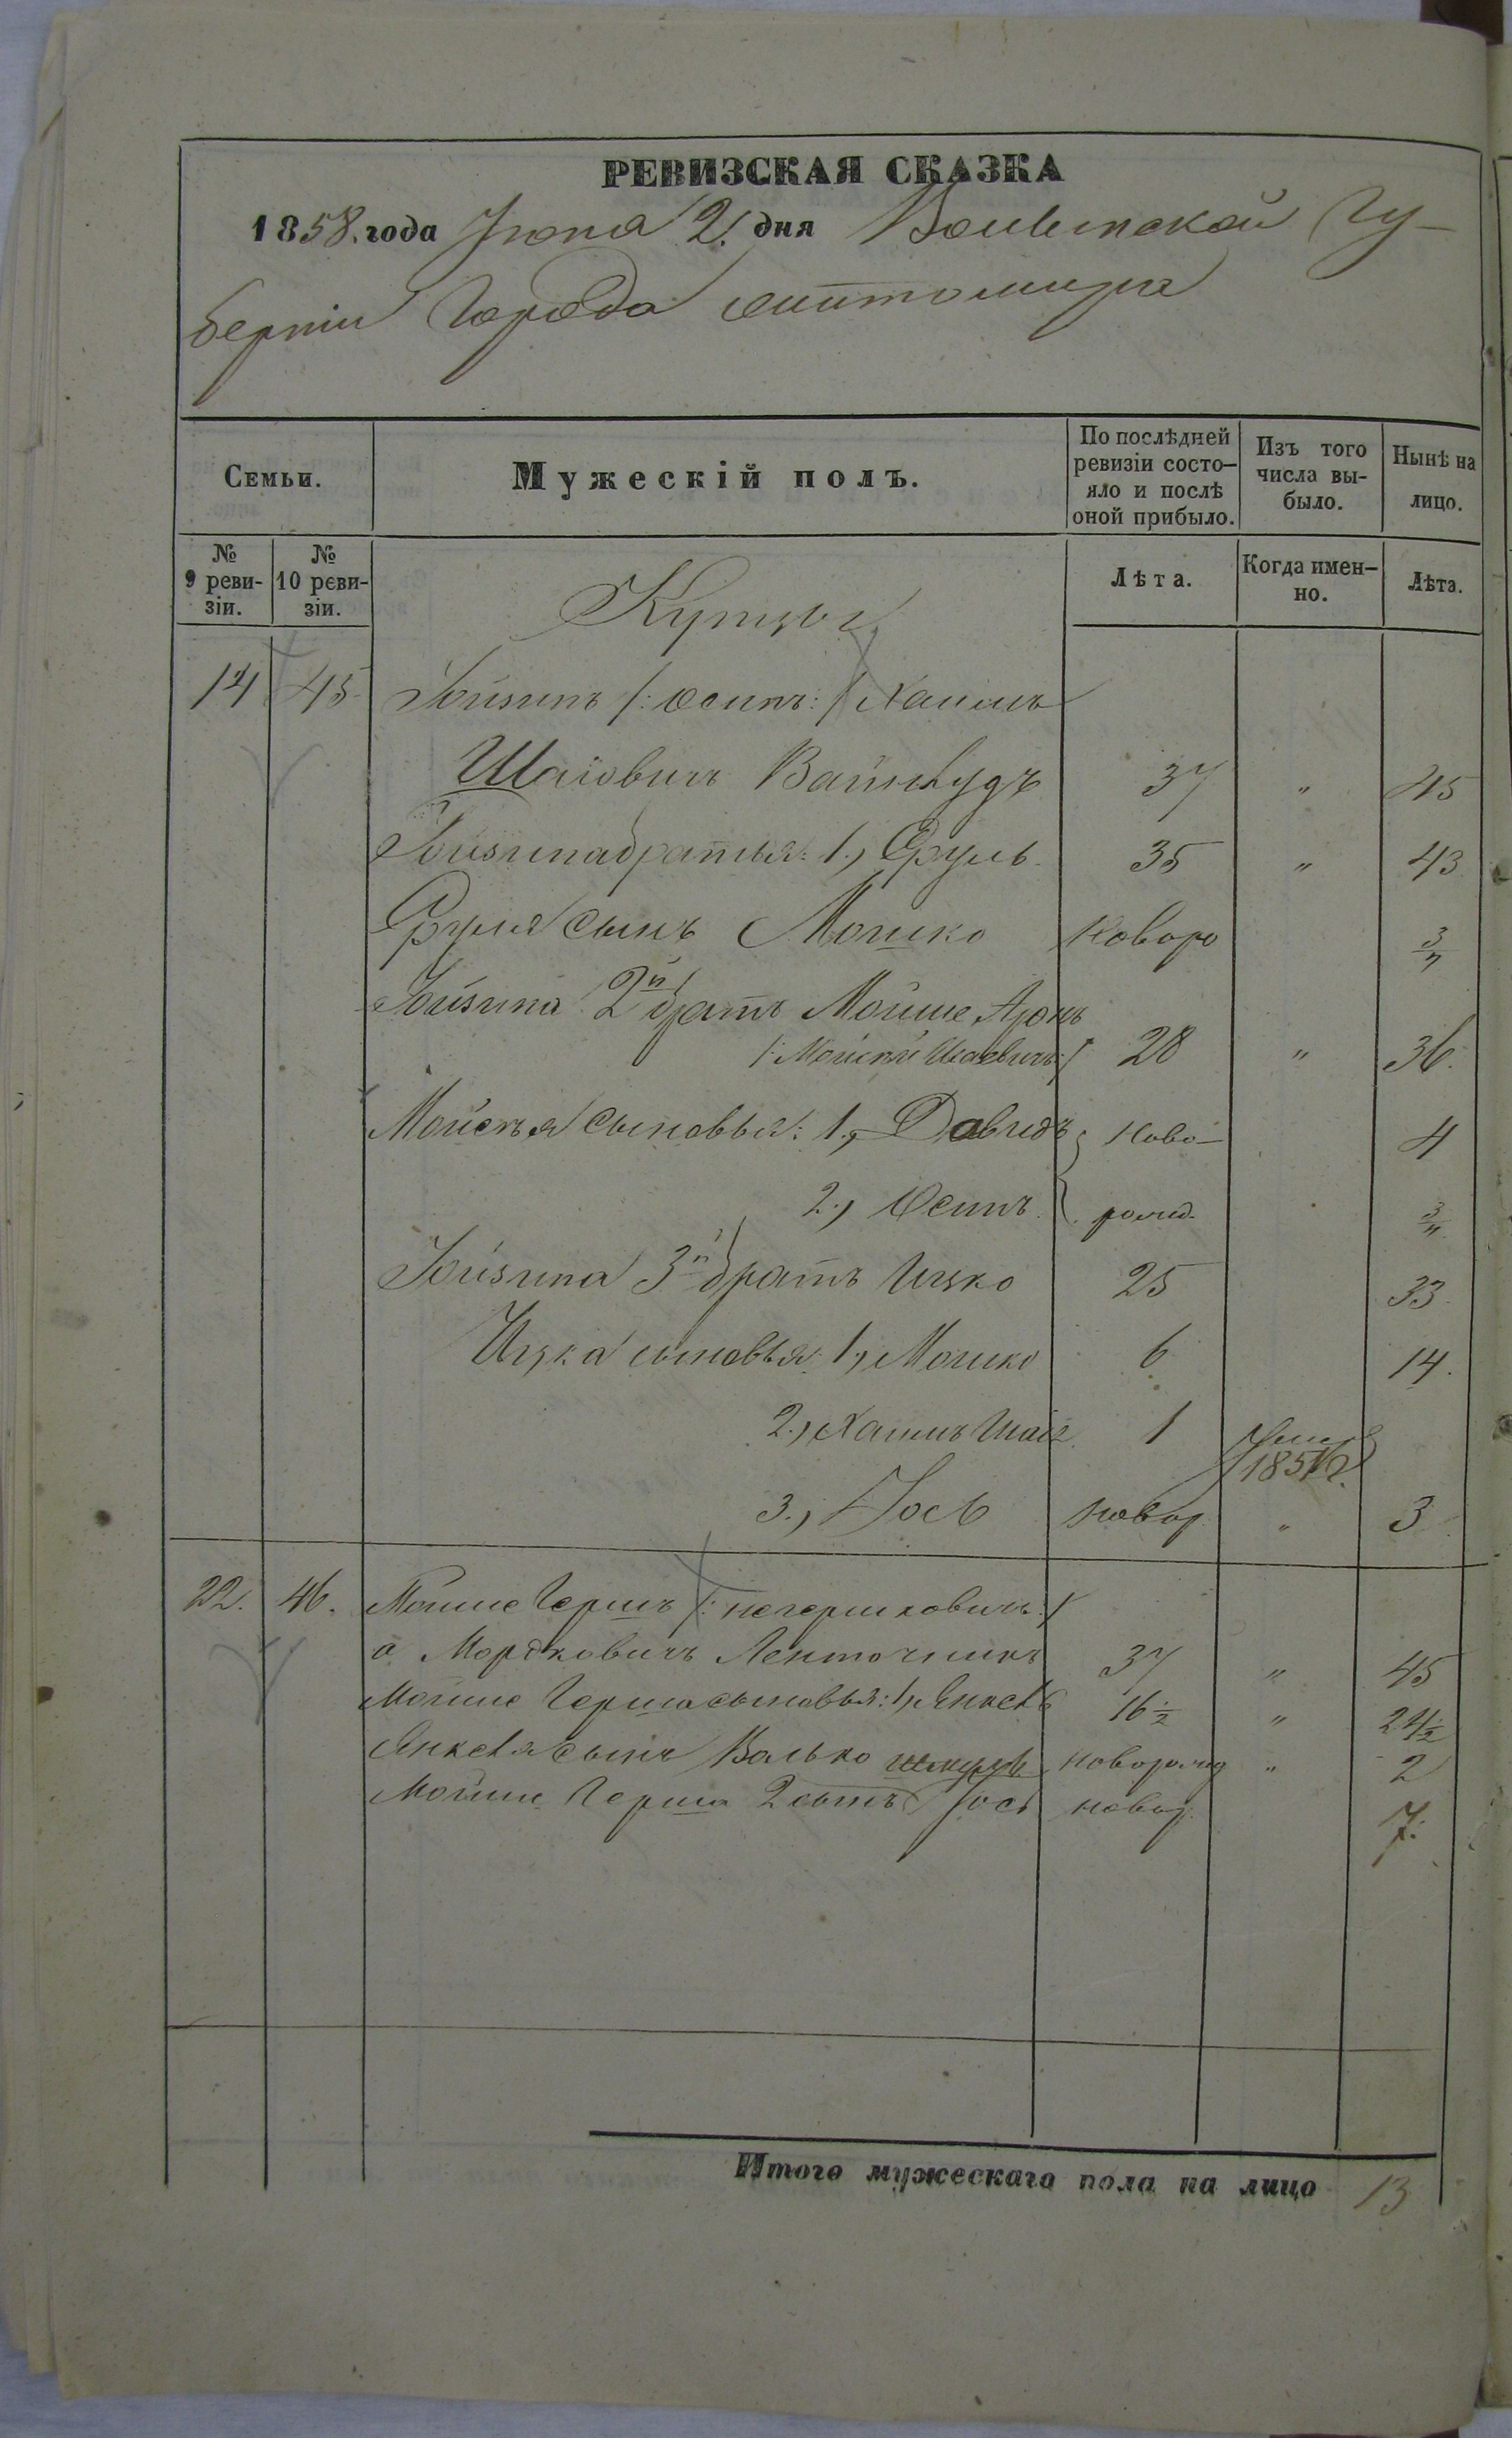 РЕВИЗСКАЯ СКАЗКА
1858. года Іюня 2. дня Волынской Гу-
берніи Города Житомира
Семьи.
Мужескій полъ.
По послѣдней ревизіи состо-
яло и послѣ оной прибыло.
Изъ того числа вы-
было.
Нынѣ на лицо.
№ 9 реви-
зіи.
№ 10 реви-
зіи.
Купцы
Лѣта.
Когда имен-
но.
Лѣта.
14 45 /: Осипъ :/ Хаимъ
Шаіовичъ 37 " 45
братья: 1., Сруль 35 " 43
Сруля сынъ Мошко Новоро 3/4
2й братъ Мойше Аронъ
28 " 36.
Мойсея сыновья: 1., Давидъ Ново- 4
2., Осипъ рожд. 3/4
3й братъ Ицко 25 33.
Ицка сыновья: 1., Мошко 6 14.
2., Хаимъ Шаія 1
3., Іось новор. " 3
22. 46. Мойше Герш
Мордковичъ Ленточникъ 37 " 45
Мойше Герша сыновья: 1, Янкель 16 1/2 " 24 1/2
Янкеля сынъ Волько новорожд " 2
Мойше Герша 2 сынъ Іось новор. 7.
Итого мужескаго пола на лицо 13